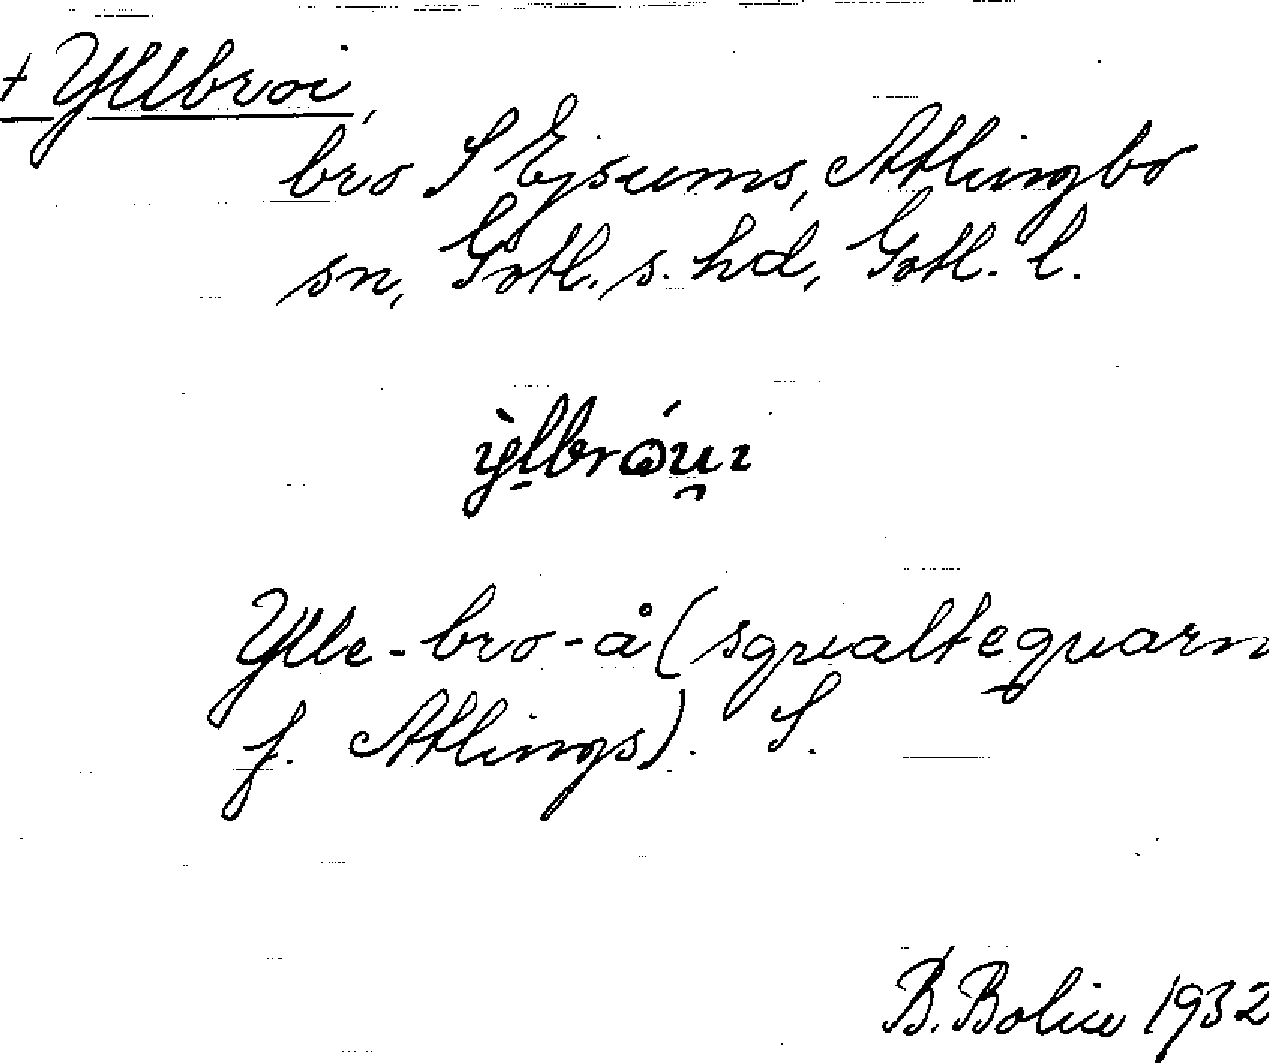 + Yllbroi,
bro S Ejsums, Atlingbo
sn, Gotl. s. hd, Gotl. l.
Ylle-bro-å (sqvaltequarn
f. Atlings). S.
B. Bolin 1932